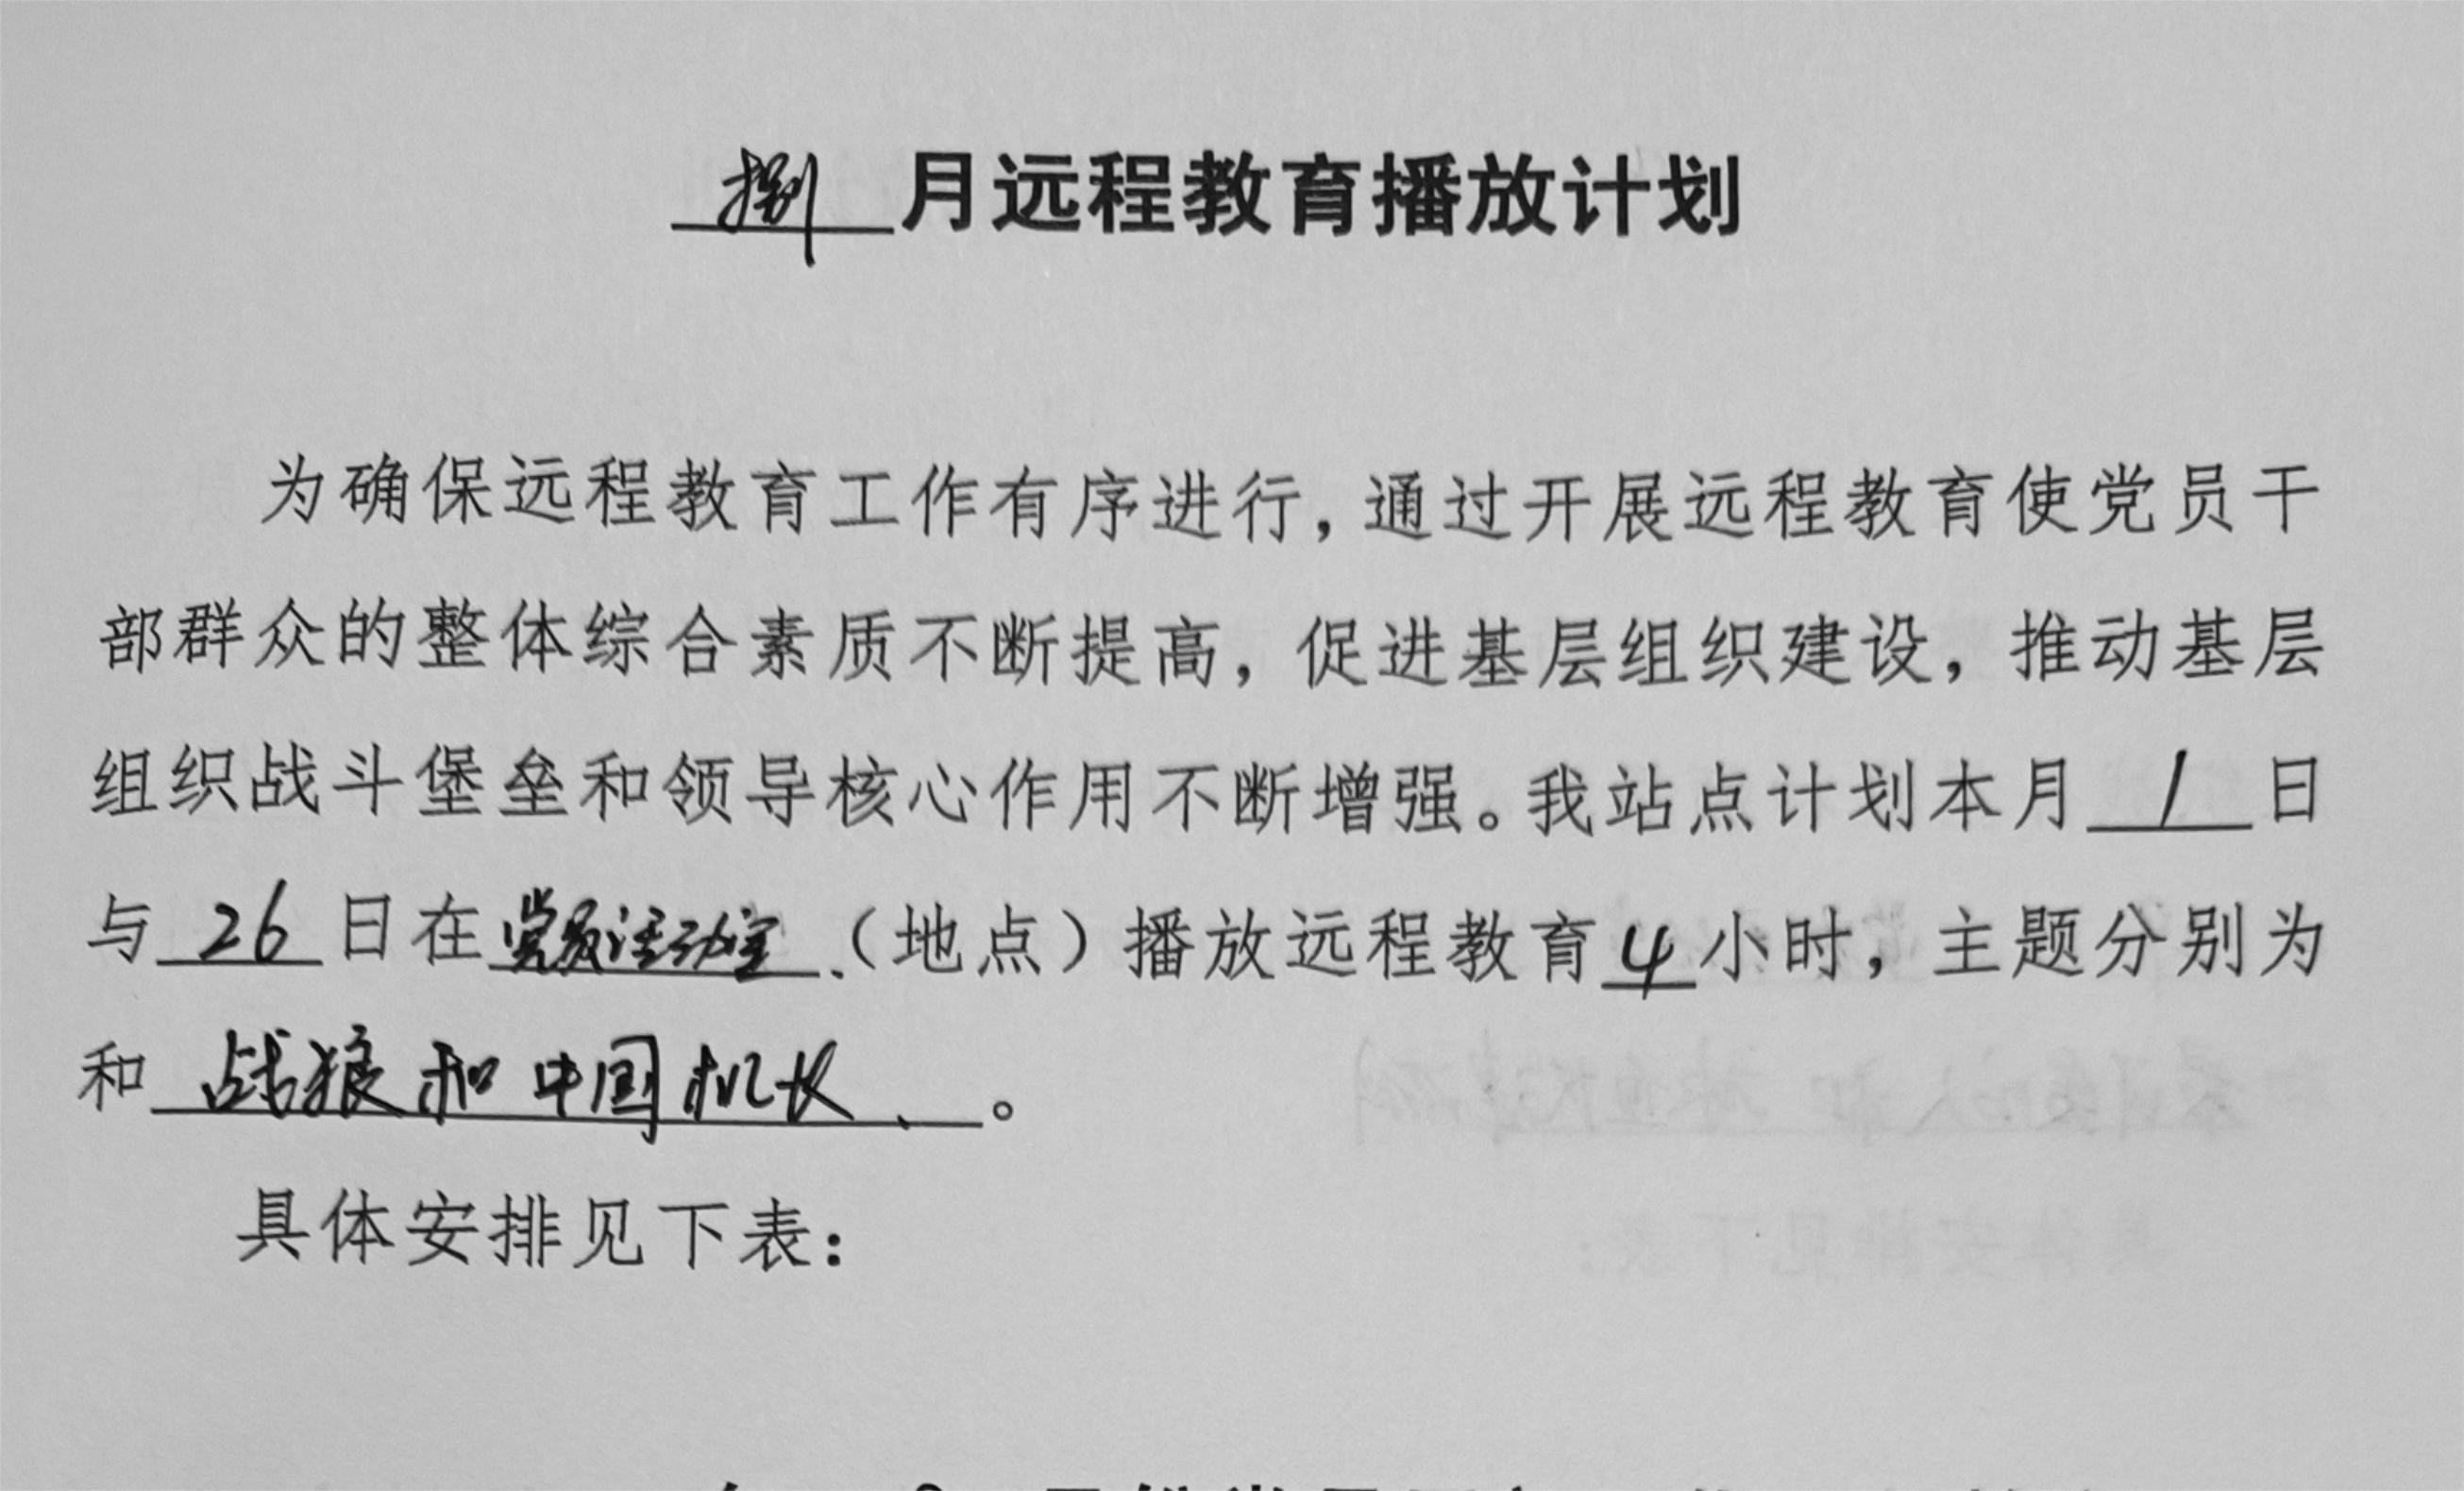 捌月远程教育播放计划
为确保远程教育工作有序进行,通过开展远程教育使党员干
部群众的整体综合素质不断提高,促进基层组织建设,推动基层
组织战斗堡垒和领导核心作用不断增强。我站点计划本月1日
与26日在党员活动室(地点)播放远程教育4小时,主题分别为
和战狼和中国机长、。
具体安排见下表: